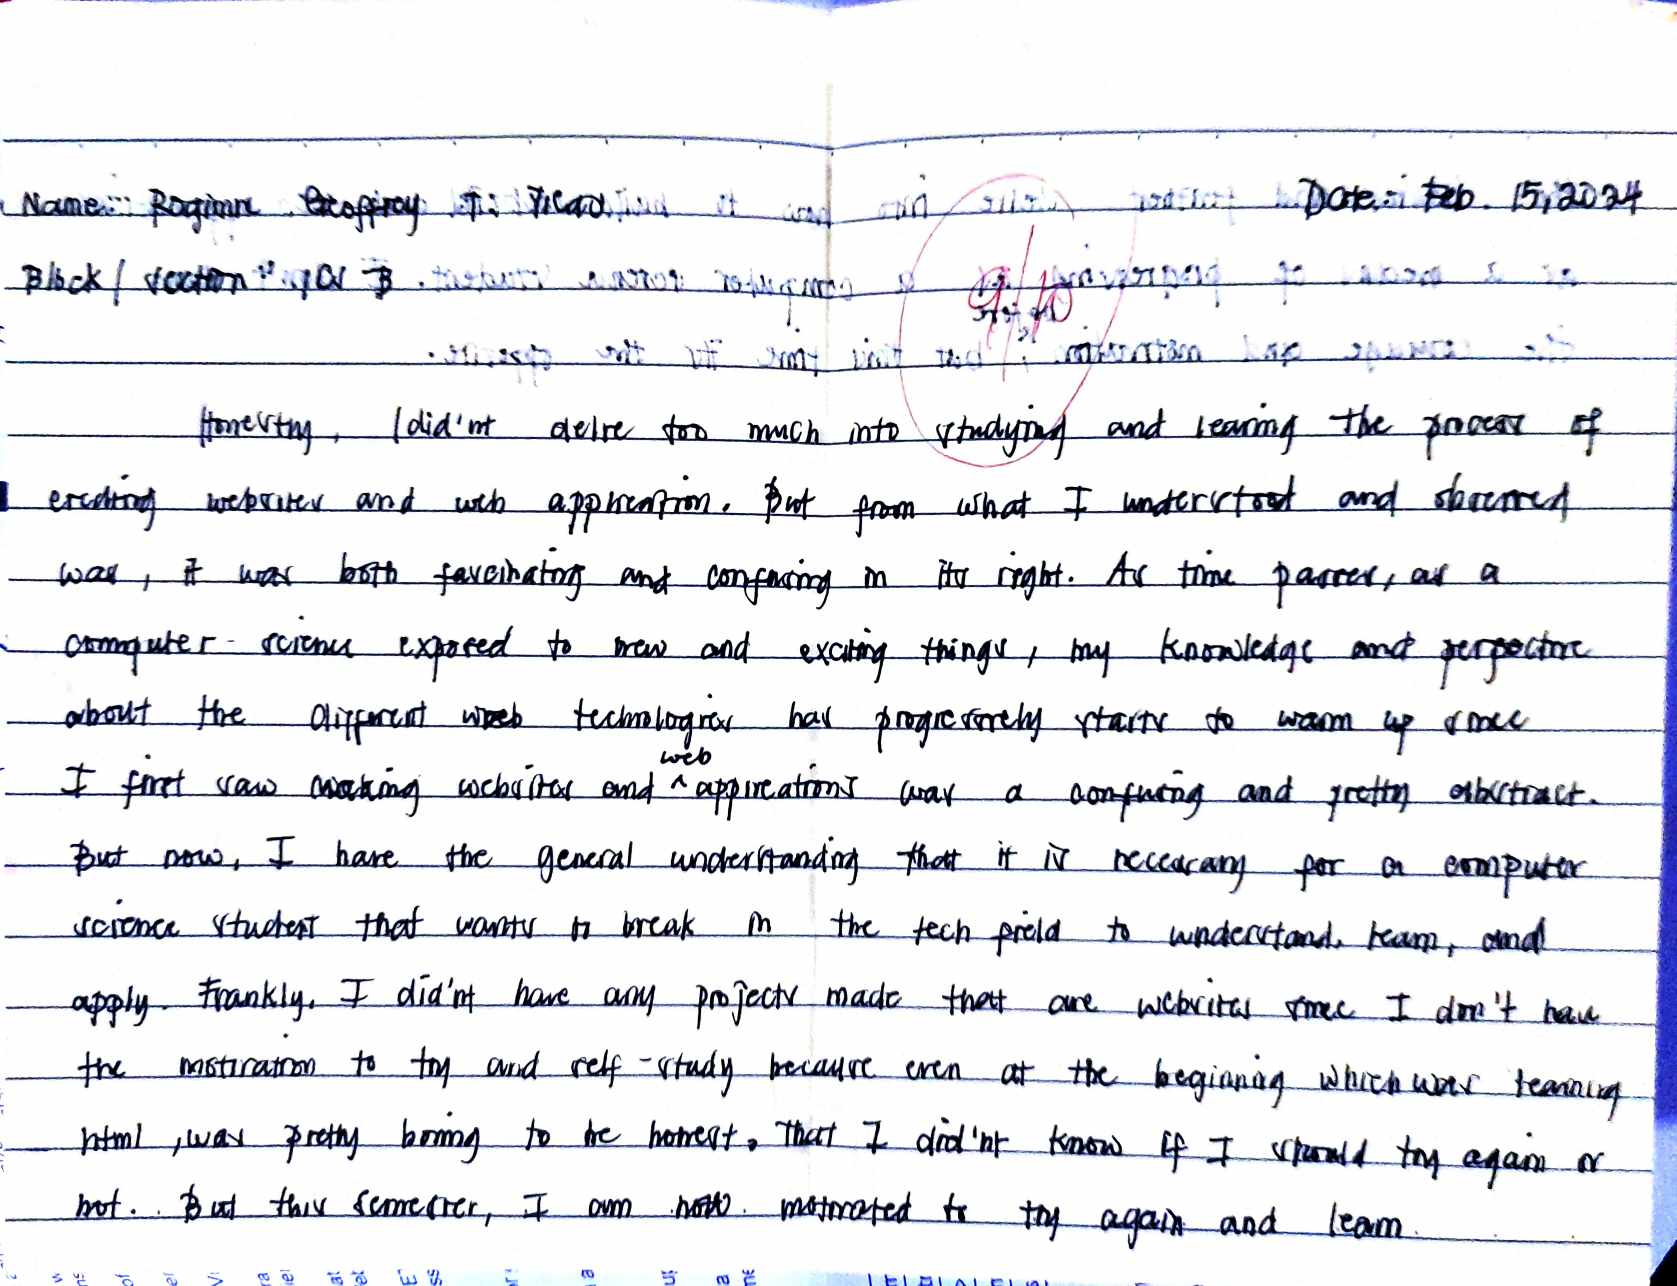 Name: Roginn Geoffrey T. Picard Date: Feb. 15, 2024
Block / section : 1CS B
9/10
Honestny, I did'nt delve too much into studying and learing the process of
creating websites and web application. But from what I understood and observed
was, it was both fascinating and confusing in its right. As time passes, as a
computer science exposed to new and exciting things, my knowledge and perpective
about the different web technologies has progressively starts to warm up since
I first saw making websites and web applications was a confusing and pretty abstract.
But now, I have the general understanding that it is neccesary for a computer
science student that wants to break in the tech field to understand, learn, and
apply. Frankly, I did'nt have any projects made that are websites since I don't have
the motivation to try and self-study because even at the beginning which was learning
html, was pretty boring to be honest. That I did'nt know if I should try again or
not. But this semester, I am now motivated to try again and learn